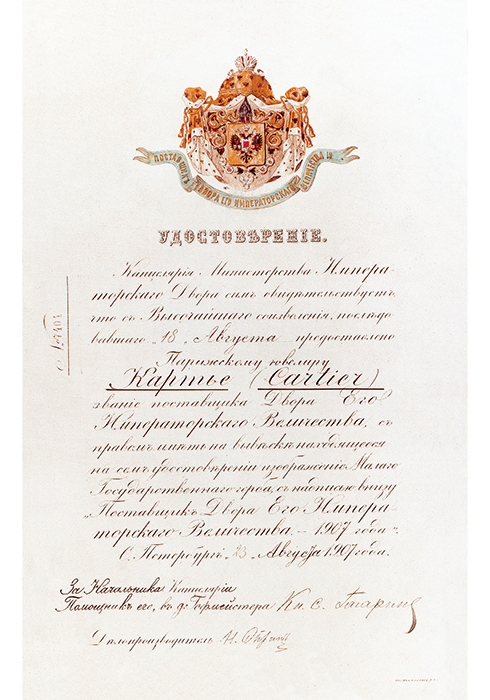 ПОСТАВЩИКЪ ДВОРА ЕГО ИМПЕРАТОРСКАГО ВЕЛИЧЕСТВА
УДОСТОВѢРЕНІЕ.
Канцелярія Министерства Импера-
торскаго Двора симъ свидѣтельствуетъ,
что съ Высочайшаго соизволенія, послѣдо-
вавшаго 18 Августа предоставлено
Парижскому ювелиру
Картье (Cartier)
званіе поставщика Двора Его
Императорскаго Величества, съ
правомъ имѣть на вывѣскѣ находящееся
на семъ удостовѣреніи изображеніе Малаго
Государственнаго герба, съ надписью внизу
„Поставщикъ Двора Его Импера-
торскаго Величества. — 1907 года".
С. Петербургъ 23 Августа 1907 года.
За Начальника Канцеляріи
Помощникъ его, въ д. Гофмейстера Кн. С. Гагаринъ
Дѣлопроизводитель Н.